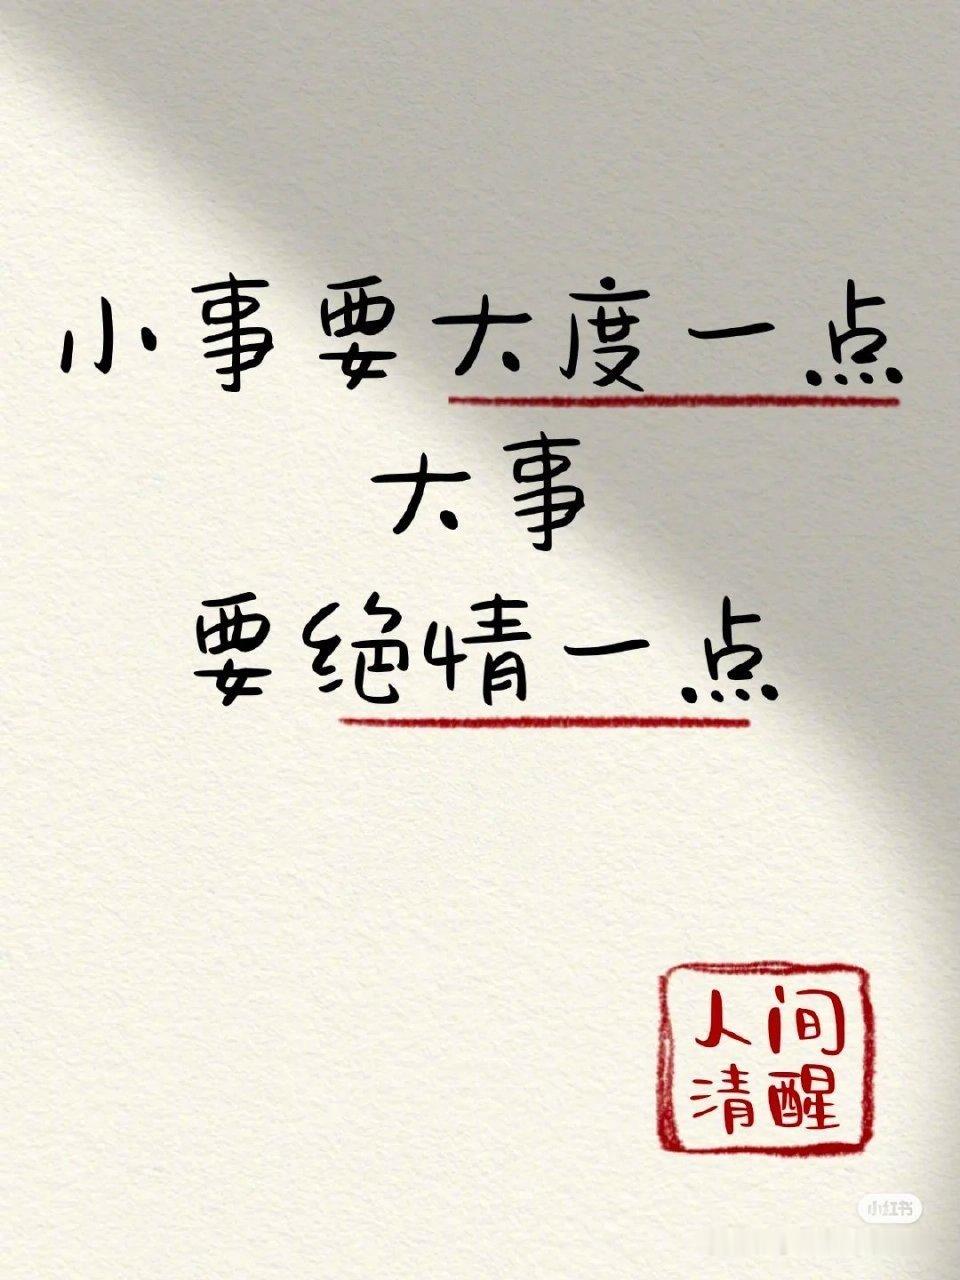 小事要大度一点
大事
要绝情一点
人间
清醒
小红书